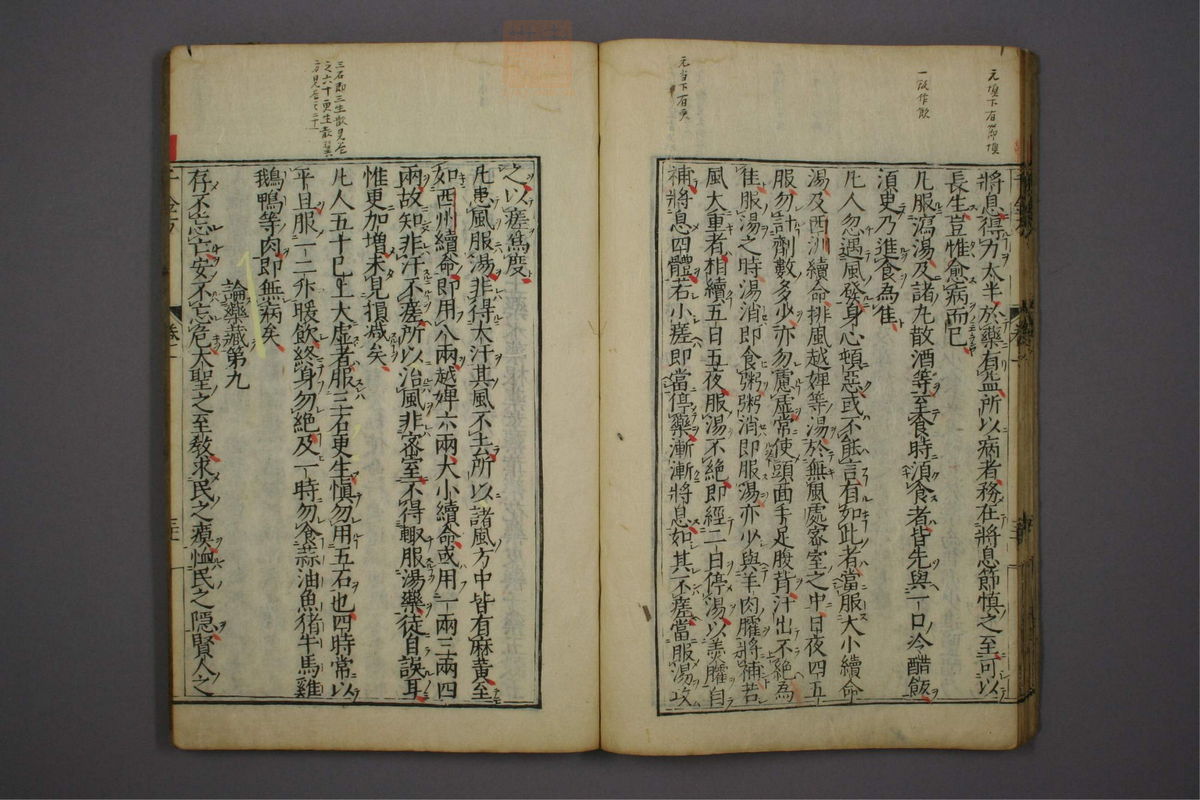 將息得力太半於藥有益所以病者務在將息節慎之至可以
長生豈惟愈病而已
凡服瀉湯及諸丸散酒等至食時須食者皆先與一口冷醋飯
須臾乃進食為佳
凡人忽遇風發身心頓惡或不能言有如此者當服大小續命
湯及西州續命排風越婢等湯於無風處密室之中日夜四五
服勿計劑數多少亦勿慮虛常使頭面手足腹背汗出不絕為
佳服湯之時湯消即食粥粥消即服湯亦少與羊肉臛將補若
風大重者相續五日五夜服湯不絕即經二日停湯以羹臛自
補將息四體若小瘥即當停藥漸漸將息如其不瘥當服湯攻
之以瘥為度
凡患風服湯非得大汗其風不去所以諸風方中皆有麻黃至
如西州續命即用八兩越婢六兩大小續命或用一兩三兩四
兩故知非汗不瘥所以治風非密室不得輒服湯藥徒自誤耳
惟更加增未見損減矣
凡人五十已上大虛者服三石更生慎勿用五石也四時常以
平旦服一二升暖飲終身勿絕及一時勿食蒜油魚猪牛馬雞
鵝鴨等肉即無病矣
論藥藏第九
存不忘亡安不忘危大聖之至教求民之瘼恤民之隱賢人之
元慎下有節慎
一飯作飲
元當下有更
三石即三生散見卷
之六十更生散翼
方見卷之二十一